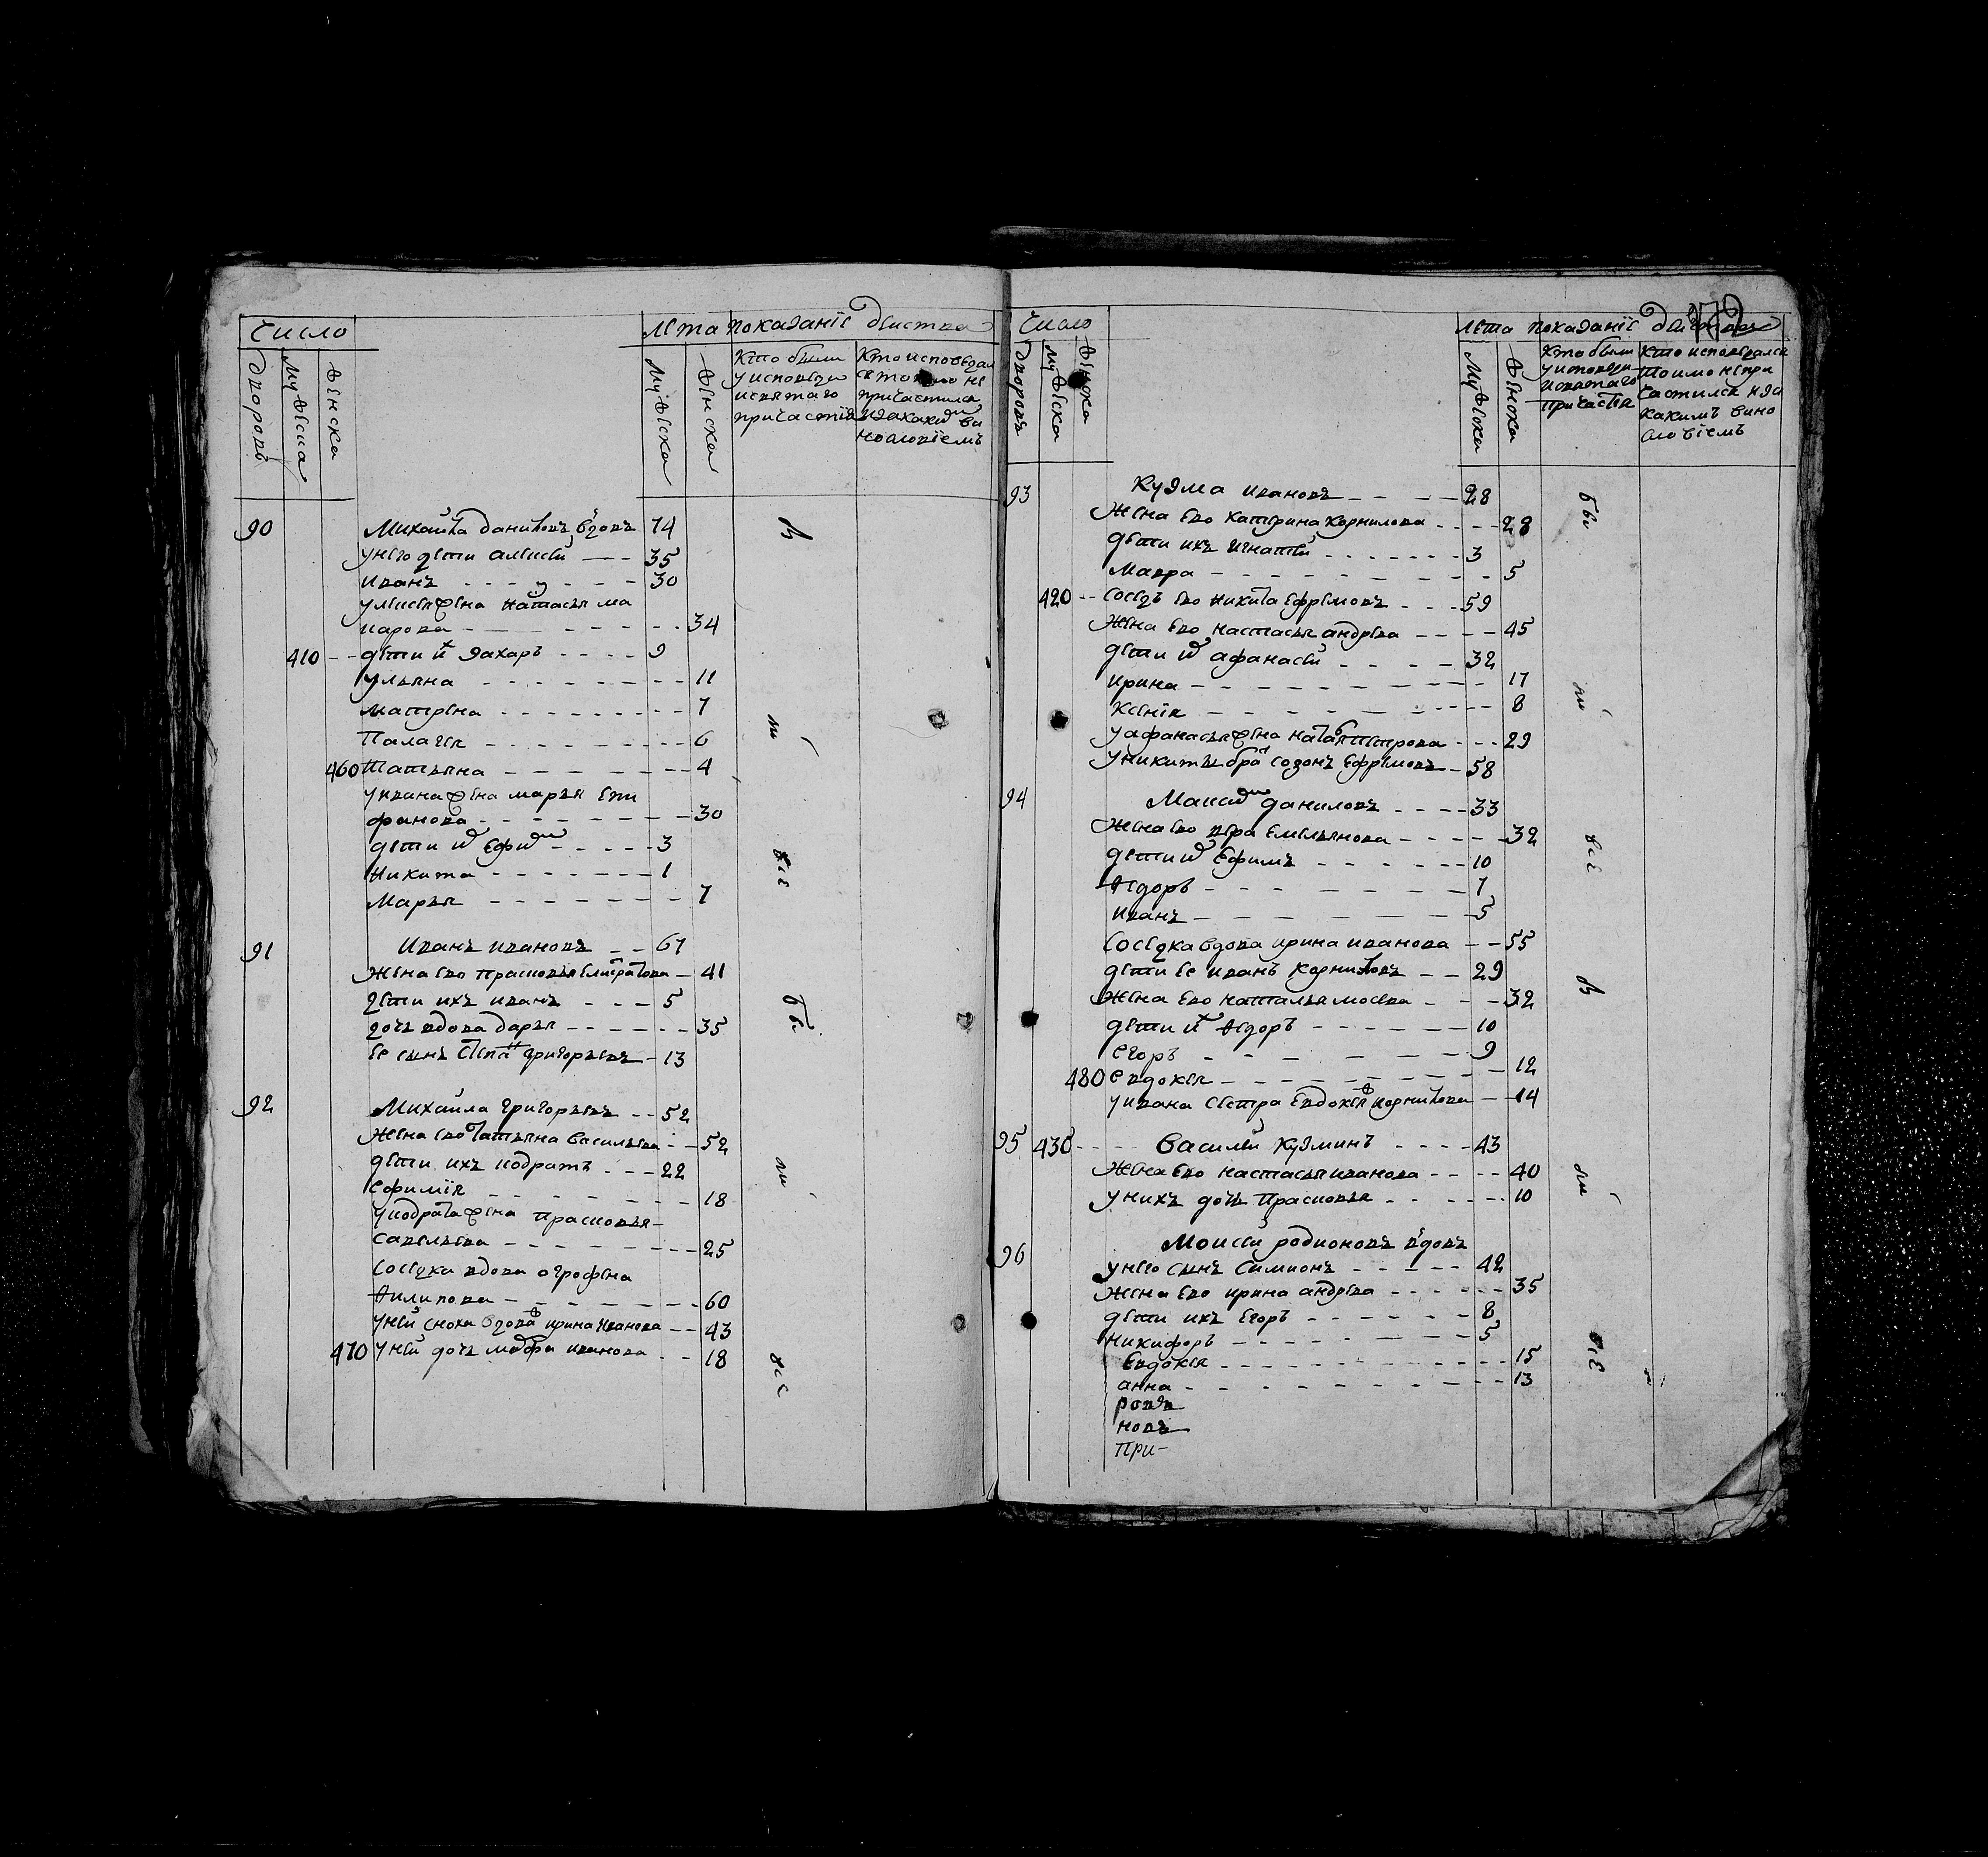 Число
Лета показание действа
дворовъ
мужеска
женска
мужеска
женска
Кто были
у исповеди
и святаго
причастия
Кто исповедал
ся токмо не
причастился
и за каким ви
нословиемъ
90 Михайла даниловъ вдовъ 74
у него дети алексей 35
иванъ 30
у алексея жена настасья ма
карова 34
410 дети их захаръ 9
ульяна 11
матрена 7
палагея 6
460 татьяна 4
у ивана жена марья епи
фанова 30
дети их ефим 3
никита 1
марья 7
91 иванъ ивановъ 67
жена ево прасковья 41
дети ихъ иванъ 5
дочь вдова дарья 35
ее сынъ степан григорьевъ 13
92 Михайла григорьевъ 52
жена ево татьяна васильева 52
дети ихъ кодратъ 22
ефимия 18
у кодрата жена прасковья
савельева 25
соседка вдова огрофена
филипова 60
у ней сноха вдова ирина иванова 43
470 у ней дочь марфа иванова 18
в
сѣ
бы
ли
всѣ
Число
Лета показание действа
дворовъ
мужеска
женска
мужеска
женска
Кто были
у исповеди
и святаго
причастия
Кто исповедался
токмо не при
частился и за
какимъ вино
словиемъ
93 Кузма ивановъ 28
жена ево катерина корнилова 28
дети ихъ игнатей 3
мавра 5
420 соседъ ево никита ефремовъ 59
жена ево настасья андрева 45
дети их афанасей 32
ирина 17
ксения 8
у афанасья жена наталя петрова 29
у никиты брат созонъ ефремовъ 58
94 Максим даниловъ 33
жена ево вера емельянова 32
дети их ефимъ 10
федоръ 7
иванъ 5
соседка вдова ирина иванова 55
дети ее иванъ корниловъ 29
жена ево наталья мосева 32
дети их федоръ 10
егоръ 9
480 евдокея 12
у ивана сестра евдокея корнилова 14
95 430 василей кузминъ 43
жена ево настасья иванова 40
у нихъ дочь прасковья 10
96 Моисей родионовъ вдовъ
у него сынъ симионъ 42
жена ево ирина андрева 35
дети ихъ егоръ 8
никифоръ 5
евдокея 15
анна 13
новъ
при-
бы
ли
всѣ